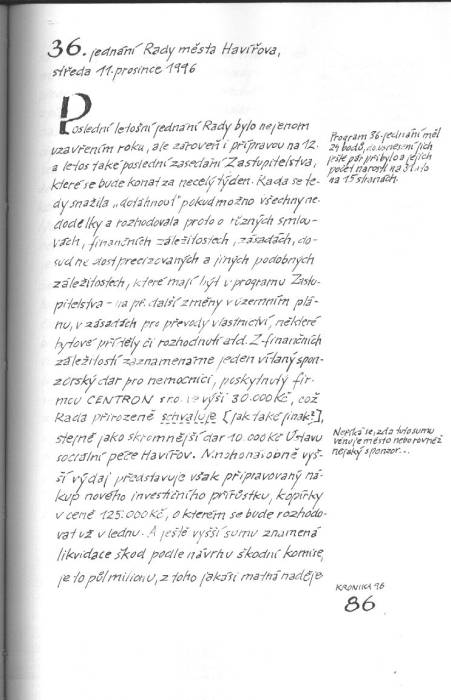 36. jednání Rady města Havířova,
středa 11. prosince 1996
Poslední letošní jednání Rady bylo nejenom
uzavřením roku, ale zároveň i přípravou na 12.
a letos také poslední zasedání Zastupitelstva,
které se bude konat za necelý týden. Rada se te-
dy snažila „dotáhnout" pokud možno všechny ne-
dodělky a rozhodovala proto o různých smlou-
vách, finančních záležitostech, zásadách, do-
sud ne dost precizovaných a jiných podobných
záležitostech, které mají být v programu Zastu-
pitelstva - na př. další změny v územním plá-
nu, v zásadách pro převody vlastnictví, některé
bytové příděly či rozhodnutí atd. Z finančních
záležitostí zaznamenáme jeden vítaný spon-
zorský dar pro nemocnici, poskytnutý fir-
mou CENTRON s r.o. ve výši 30.000 Kč, což
Rada přirozeně schvaluje [jak také jinak?],
stejně jako skromnější dar 10.000 Kč Ústavu
sociální péče Havířov. Mnohonásobně vyš-
ší výdaj představuje však připravovaný ná-
kup nového investičního přírůstku, kopírky
v ceně 125.000 Kč, o kterém se bude rozhodo-
vat už v lednu. A ještě vyšší sumu znamená
likvidace škod podle návrhu škodní komise,
je to půl milionu, z toho jakási matná naděje
Program 36. jednání měl
24 bodů, do vnesení jich
ještě pár přibylo a jejich
počet narostl na 31 to
na 15 stranách.
Neříká se, zda tuto sumu
věnuje město nebo rovněž
nějaký sponzor...
KRONIKA 96
86